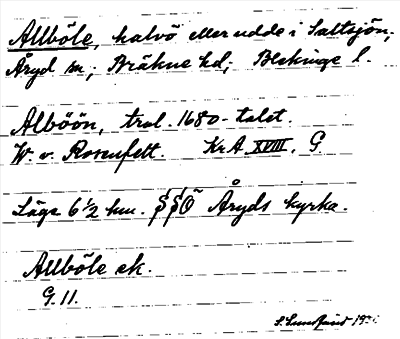 Allböle, halvö eller udde i Saltsjön,
Åryd sn; Bräkne hd; Blekinge l.
Alböön, trol. 1680-talet.
W. v. Rosenfelt. Kr A XVIII. G
Läge 6 1/2 km. SSÖ Åryds kyrka.
Allböle ek.
G. 11.